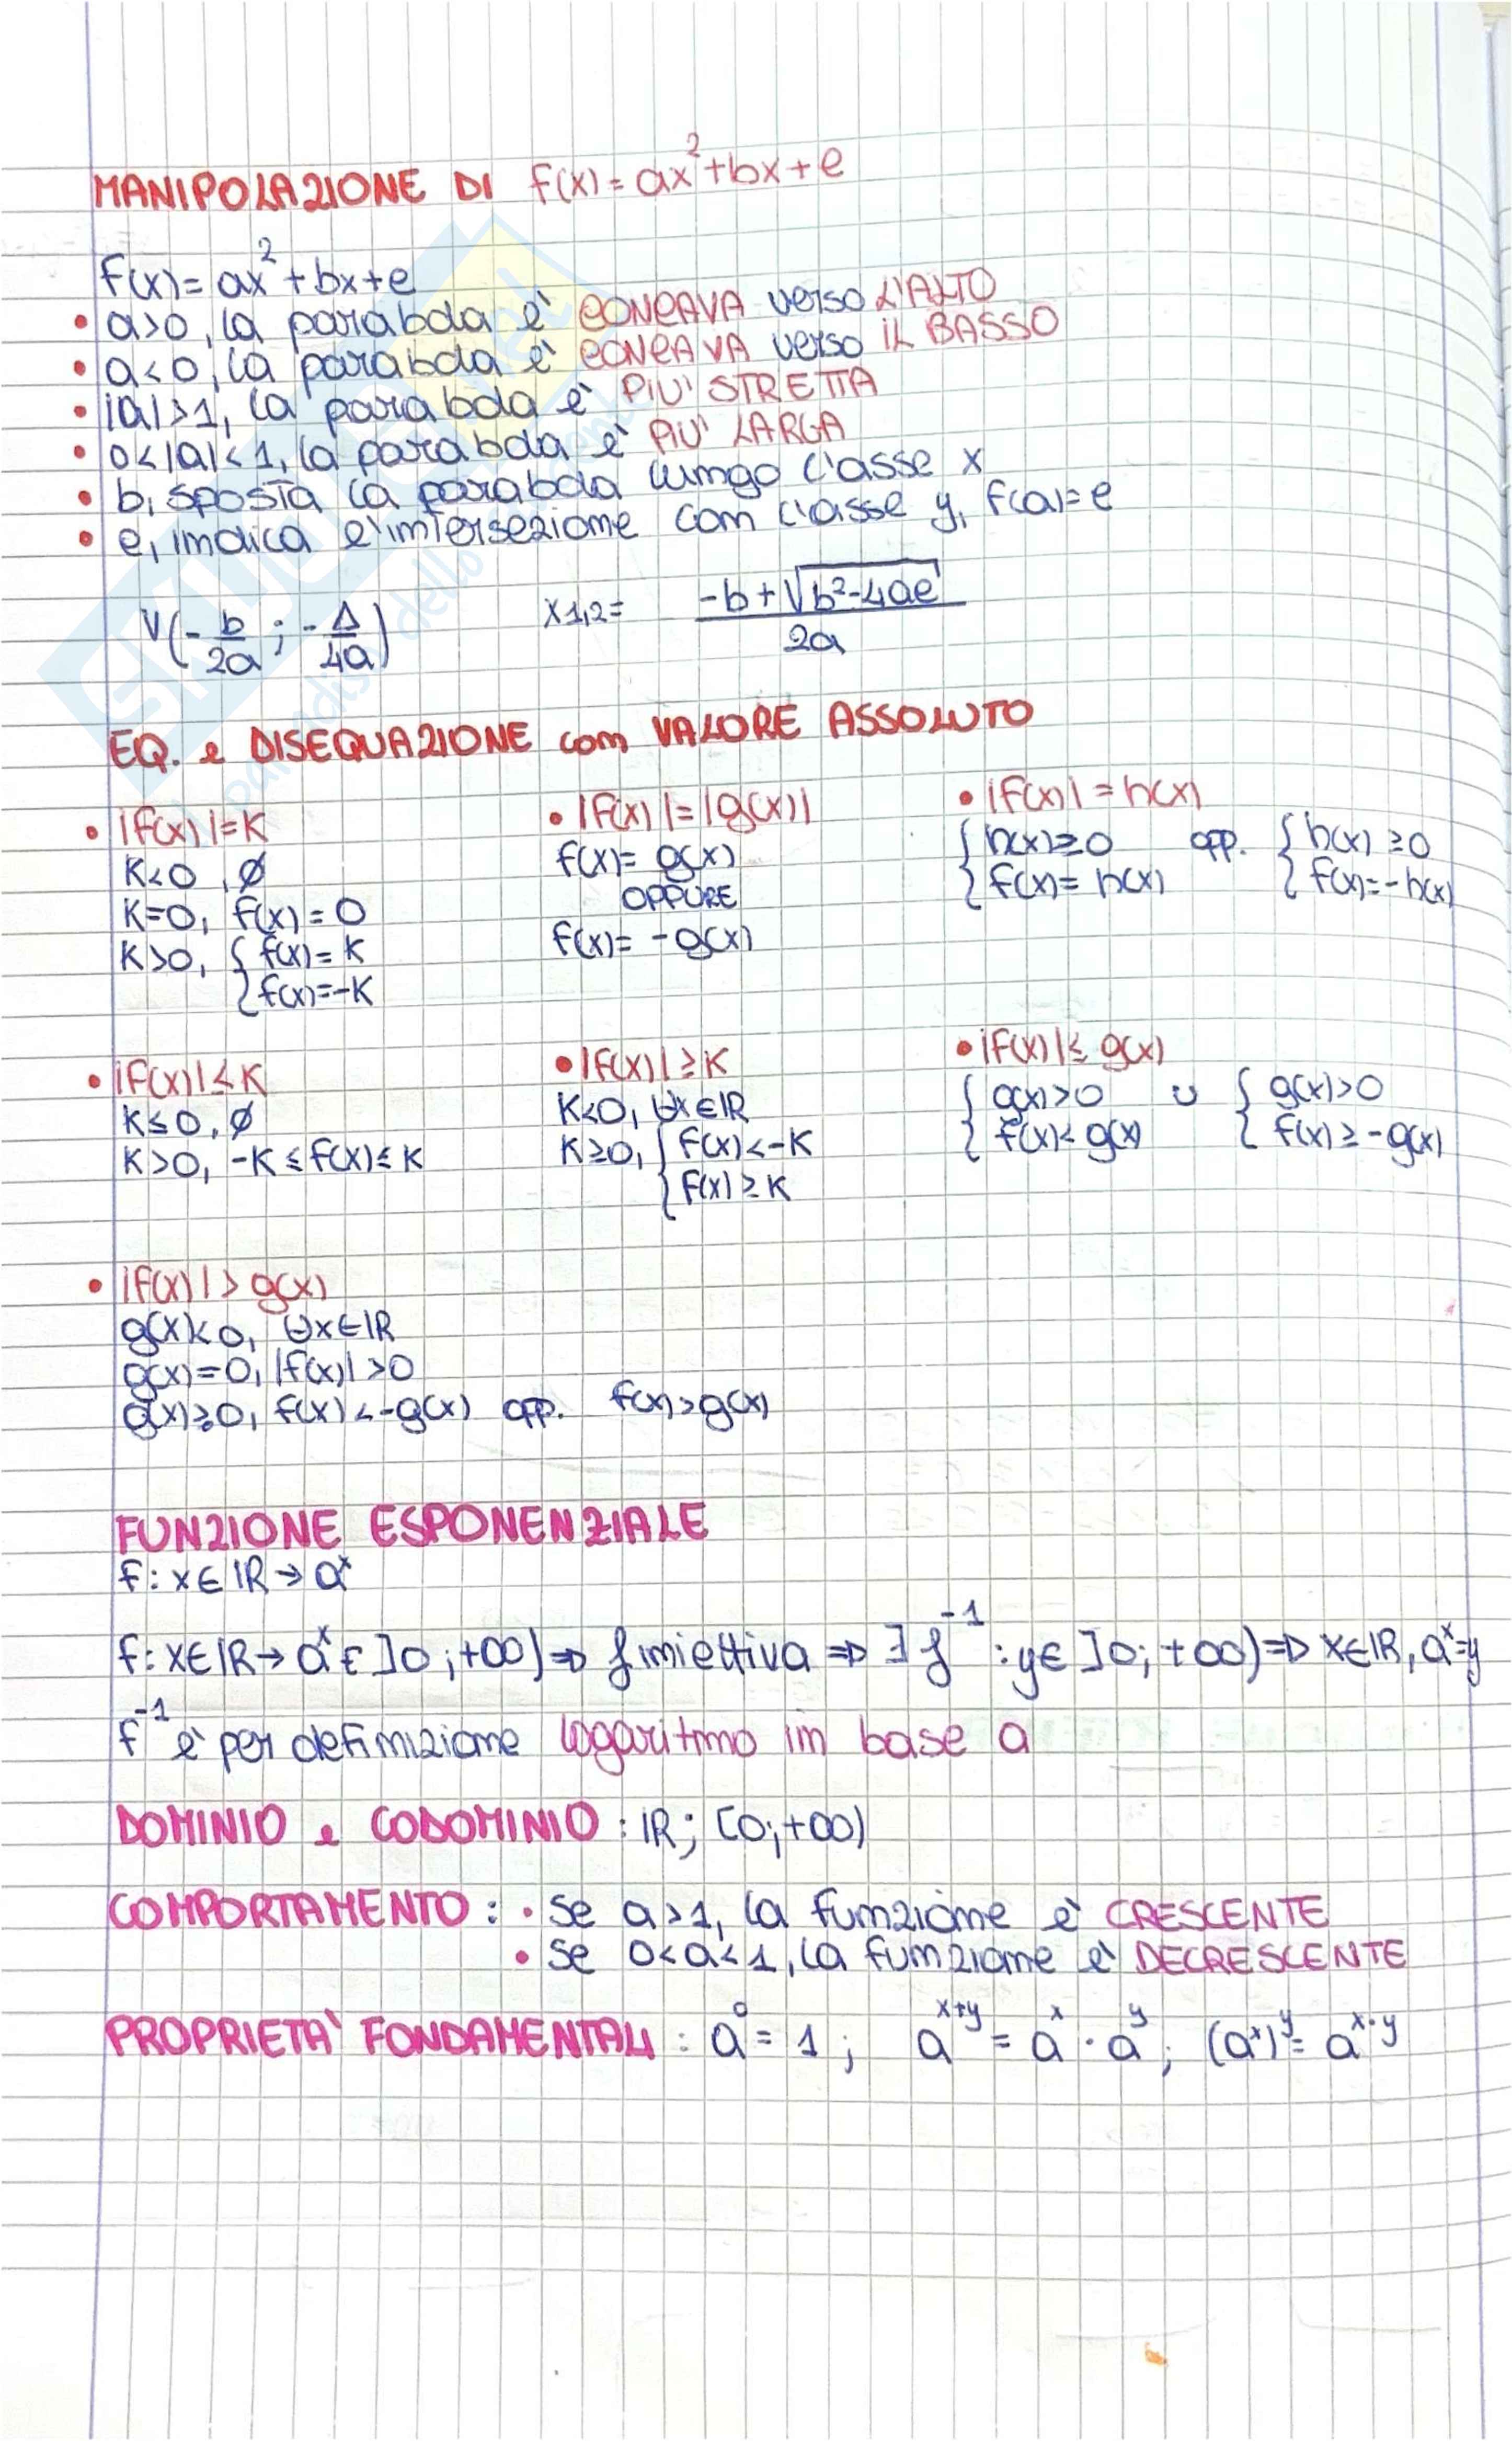 MANIPOLAZIONE DI f(x)= ax²+bx+c
f(x)= ax²+bx+c
• a>0, la parabola è CONCAVA verso L'ALTO
• a<0, la parabola è CONCAVA verso IL BASSO
• |a|>1, la parabola è PIU' STRETTA
• 0<|a|<1, la parabola è PIU' LARGA
• b, sposta la parabola lungo l'asse x
• c, indica l'intersezione con l'asse y, f(0)=c
V(-b/2a ; -Δ/4a) x1,2= (-b+√(b²-4ac))/2a
EQ. e DISEQUAZIONE con VALORE ASSOLUTO
• |f(x)|=K
K<0, ∅
K=0, f(x)=0
K>0, { f(x)=K
{ f(x)=-K
• |f(x)|=|g(x)|
f(x)= g(x)
OPPURE
f(x)= -g(x)
• |f(x)|=h(x)
{ h(x)≥0 opp. { h(x)≥0
{ f(x)= h(x) { f(x)=-h(x)
• |f(x)|≤K
K≤0, ∅
K>0, -K≤f(x)≤K
• |f(x)|≥K
K<0, ∀x∈IR
K≥0, { f(x)<-K
{ f(x)≥K
• |f(x)|≤ g(x)
{ g(x)>0 ∪ { g(x)>0
{ f(x)< g(x) { f(x)≥-g(x)
• |f(x)|> g(x)
g(x)<0, ∀x∈IR
g(x)=0, |f(x)|>0
g(x)≥0, f(x)<-g(x) opp. f(x)>g(x)
FUNZIONE ESPONENZIALE
f: x∈IR→aˣ
f: x∈IR→ aˣ∈]0;+∞)⇒ f iniettiva ⇒ ∃ f⁻¹: y∈ ]0;+∞)⇒ x∈IR, aˣ=y
f⁻¹ è per definizione logaritmo in base a
DOMINIO e CODOMINIO: IR; (0;+∞)
COMPORTAMENTO: • se a>1, la funzione è CRESCENTE
• se 0<a<1, la funzione è DECRESCENTE
PROPRIETA' FONDAMENTALI: a⁰=1; aˣ⁺ʸ= aˣ·aʸ; (aˣ)ʸ= aˣ·ʸ